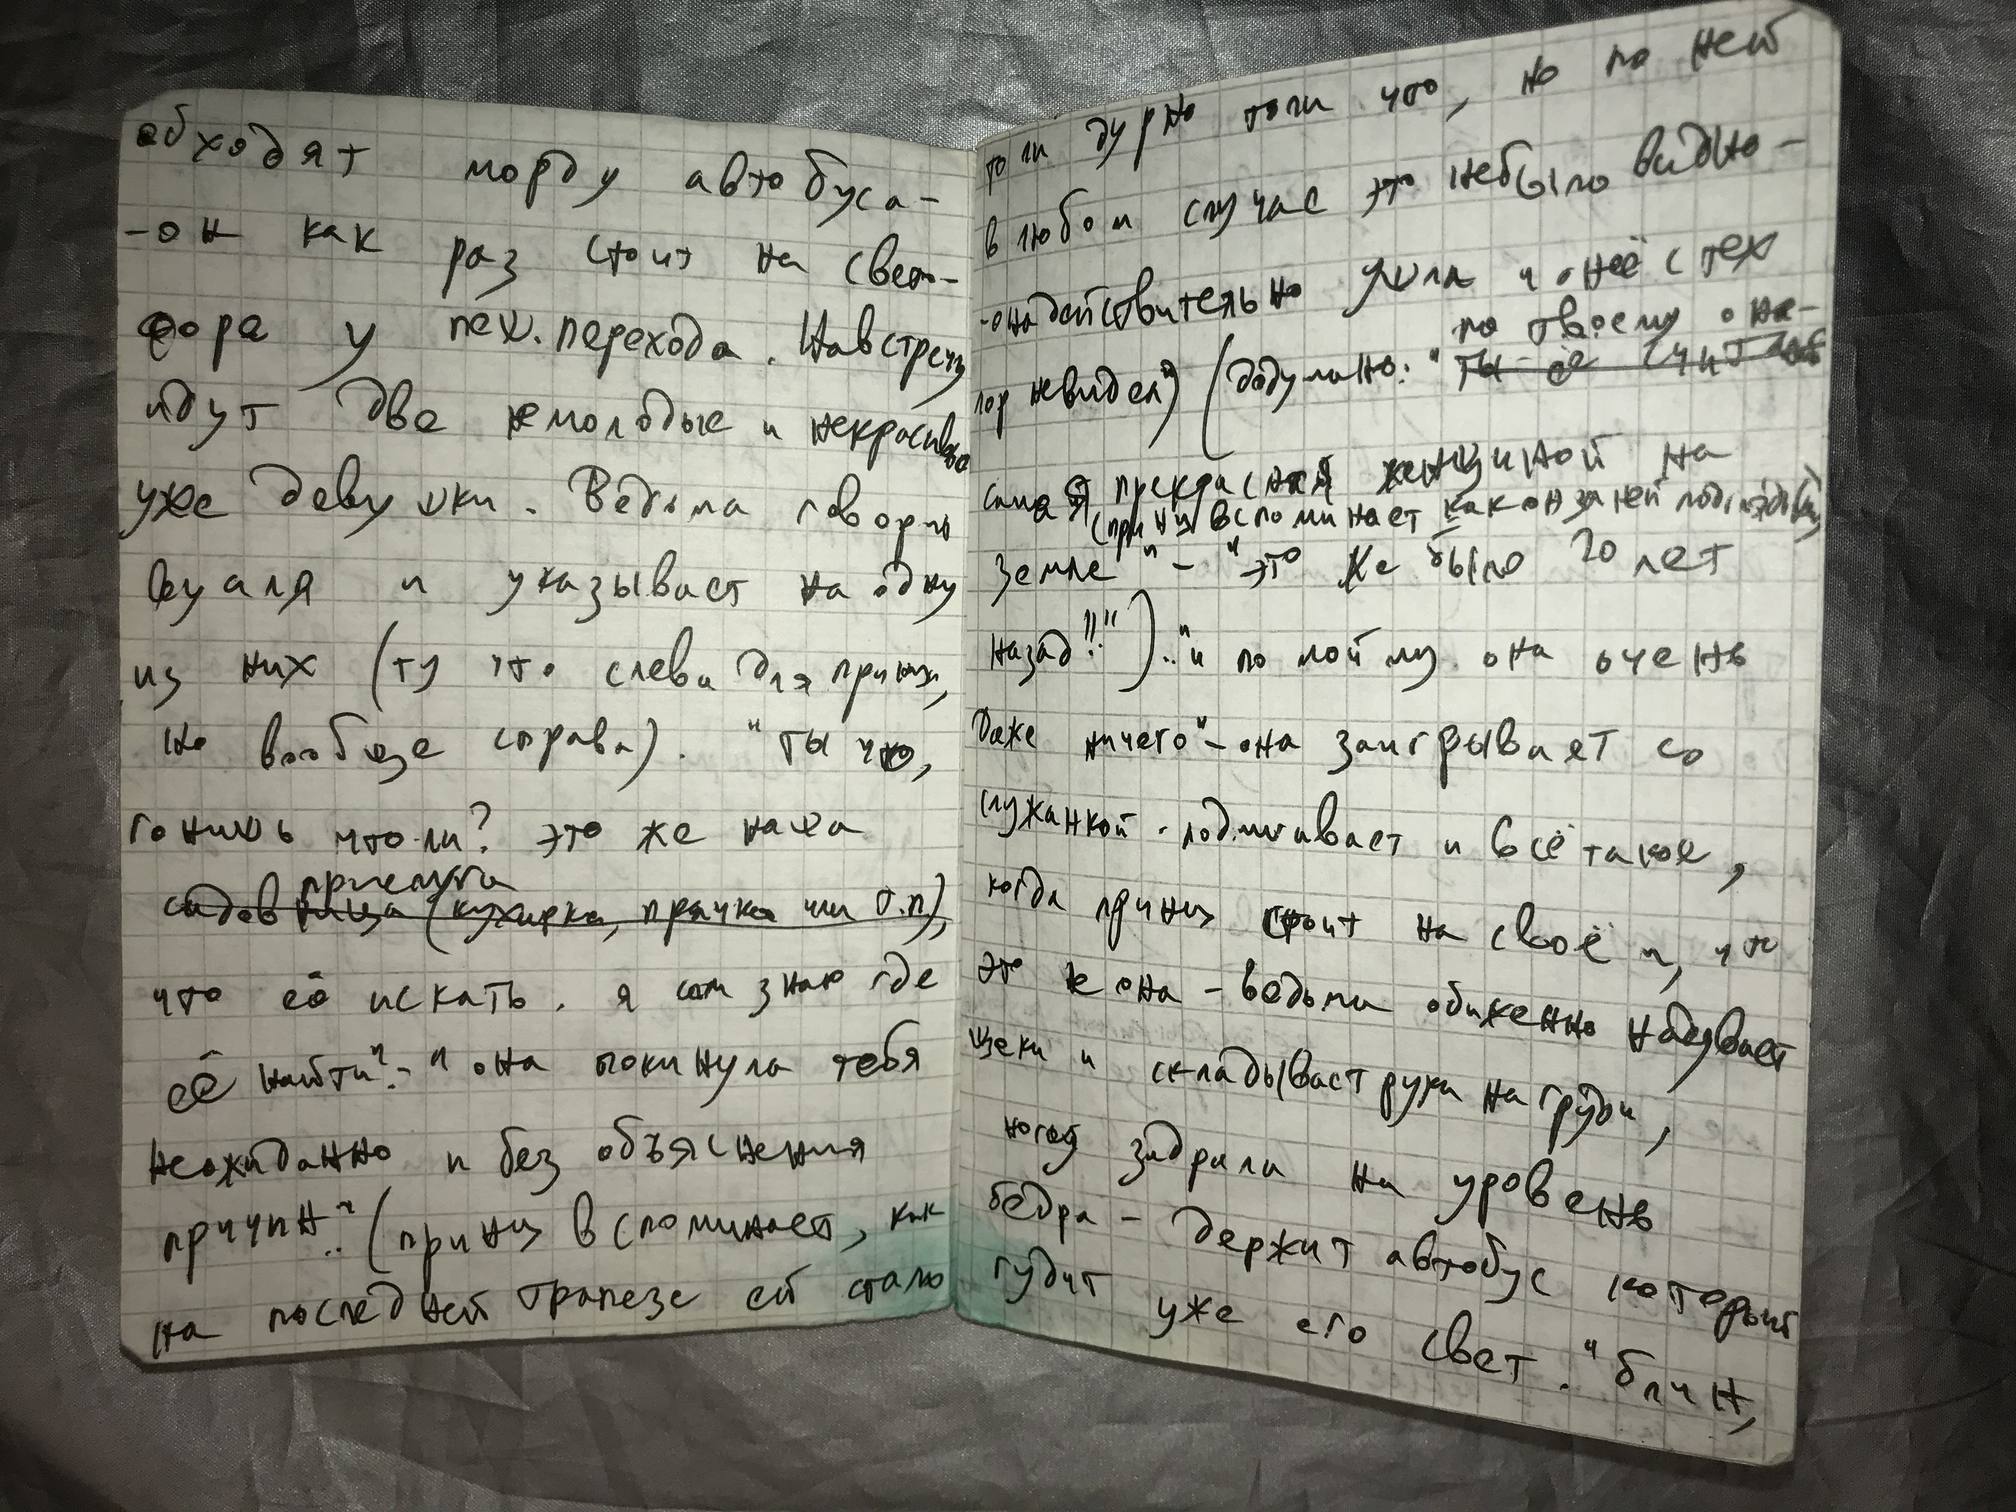 обходят морду автобуса-
-он как раз стоит на свето-
форе у пех. перехода. Навстречу
идут две немолодые и некрасивые
уже девушки. Ведьма говорит
вуаля и указывает на одну
из них (ту что слева для принца,
но вообще справа). "ты что,
гонишь что-ли? это же наша
прислуга
садовница (кухарка, прачка или т.п),
что её искать. я сам знаю где
её найти". - "она покинула тебя
неожиданно и без объяснения
причин".. (принц вспоминает, как
на последней трапезе ей стало
то ли дурно толи что, но по ней
в любом случае это небыло видно -
-она действительно ушла и онеё с тех
пор невидел) (додумано: "ты её считаешь
по твоему она-
самая прекрасная женщиной на
(принц вспоминает как он за ней подглядывал)
земле" - "это же было 20 лет
назад!!") .."и по мойму она очень
даже ничего" - она заигрывает со
служанкой - подмигивает и всё такое,
когда принц стоит на своём, что
это не она - ведьма обиженно надувает
щеки и складывает руки на груди,
ногу задрала на уровень
бедра - держит автобус который
гудит уже его свет. "блин,